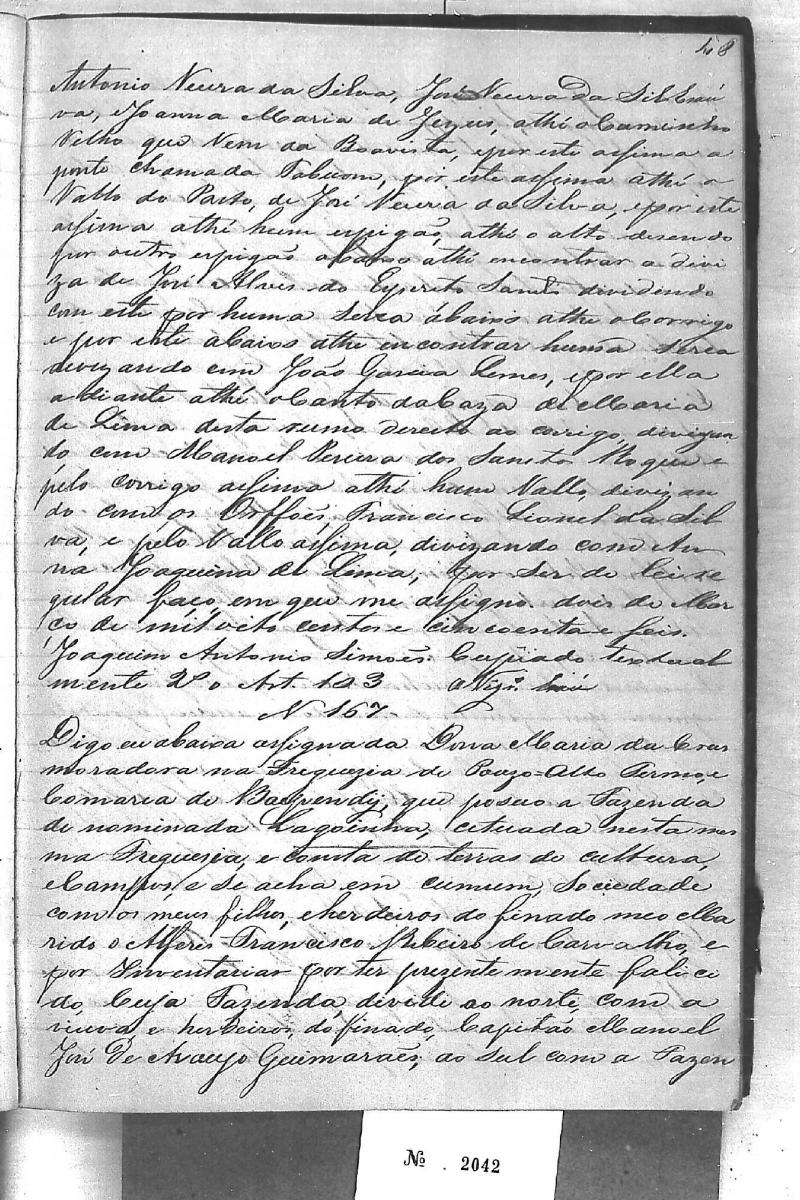 48
Antonio Vieira da Silva, José Vieira da Silva
va, e Joanna Maria de Jezus, athé o Caminho
Velho que Vem da Boavista, e por este assima a
ponte chamada Taboom, por este assima athé o
Vallo do Pasto, de José Vieira da Silva, e por este
assima athé hum espigão, athé o alto desendo
por outro espigão abaixo athé encontrar a divi
za de José Alves do Espereto Santo dividindo
com este por huma seica ábaixo athe o Corrigo
e por este abaixo athe incontrar huma serca
devizando com João Garcia Lemes, e por ella
a diante athé o Canto da Caza de Maria
de Lima desta rumo dereito ao corigo, divizan
do com Manoel Pereira dos Sanctos Roque e
pelo corrigo assima athé hum Vallo, divizan
do com os Orffóes Francisco Lionel da Sil
va, e pelo Vallo assima, divizando com An
na Joaquina de Lima, e por ser de lei re
gular faço, em que me assigno dois de Mar
ço de mil oito centos e cincoenta e seis.
Joaquim Antonio Simoés. Cupiado textual
mente 2º o Art. 103 o Vigº.
Nº 167.
Digo eu abaixa assignada Dona Maria da Cras
moradora na Freguezia de Pouzo-Alto Termo, e
Comarca de Baependÿ, que posuo a Fazenda
de nominada Lagoinha, cituada nesta mes
ma Freguezia, e consta de terras de cultura,
e Campos, e se acha em cumum, sociedade
com os meus filhos, e herdeiros do finado meo Ma
rido o Alferes Francisco Ribeiro de Carvalho, e
por Inventariar por ter prezentemente falici
do, Cuja Fazenda, divide ao norte, com a
viuva e herdeiros, do finado, Capitão Manoel
José de Araujo Guimaraés, ao sul com a Fazen
Nº. 2042